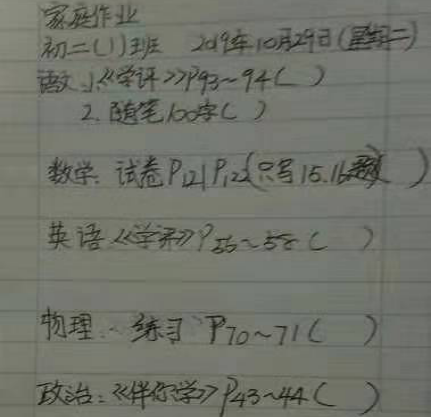 家庭作业
初二(1)班 2019年10月29日(星期二)
语文:1.《学评》P93~94( )
2.随笔100字( )
数学:试卷P121 P122(只写15.16题)( )
英语《学评》P56~58( )
物理:练习 P70~71( )
政治:《伴你学》P43~44( )